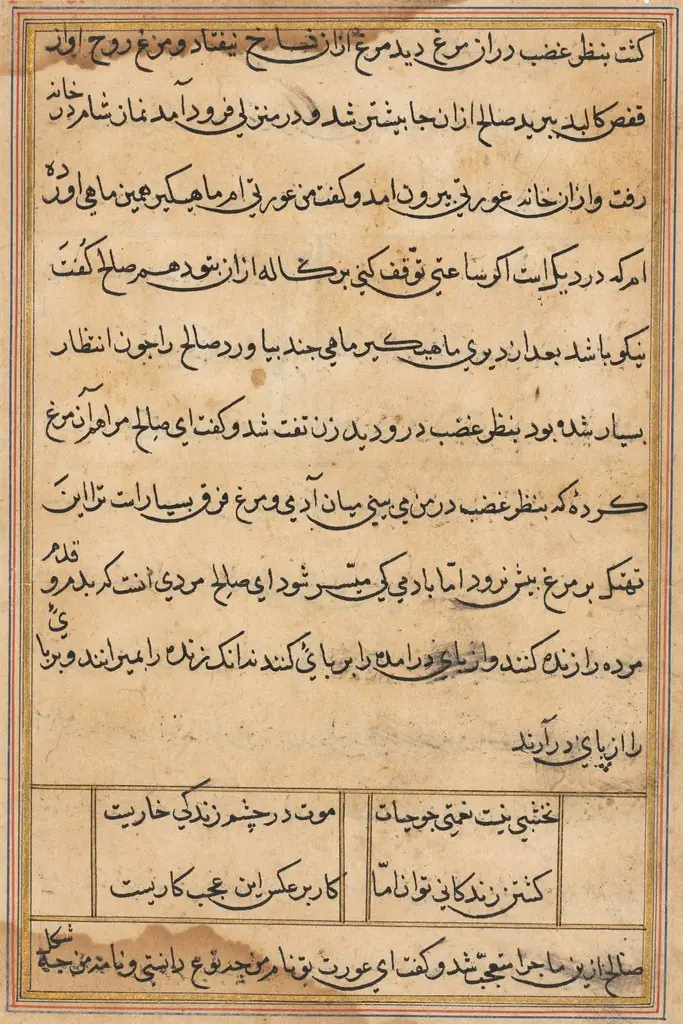 کشت بنظر غضب دران مرغ دید مرغ ازان شاخ بیفتاد و مرغ روح اواز
قفص کالبد ببرید صالح ازان جا بیشتر شد و در منزلی فرود آمد نماز شام در خانه
رفت وازان خانه عورتی بیرون امد و کفت من عورتی ام ماهیکیر همین ماهی اورده
ام که در دیک است اکر ساعتی توّقف کنی برکاله ازان بتو دهم صالح کُفتَ
نیکو باشد بعد از دیری ماهیکیر ماهی جند بیاورد صالح را جون انتظار
بسیار شده بود بنظر غضب درو دید زن تفت شد و کفت ای صالح مرا هم آن مرغ
کردۀ که بنظر غضب در من می بینی میان آدمی و مرغ فرق بسیار است ترا این
تهتک بر مرغ بیش نرود امّا بادمی کی میسّر شود ای صالح مردی انست که بدم و قدم
مرده را زنده کنند و از پای درامده را بر پائ کنند نه انک زنده را بمیرانند و بر پائ
را از پپای درآرند
نخشبی نیست نعمتی جو حیات موت در چشم زندکی خاریست
کشتن زندکانی توان امّا کار بر عکس این عجب کاریست
صالح ازین ماجرا متعجّب شد و کفت ای عورت تو نام من چه نوع دانستی و نامه من چه شکل